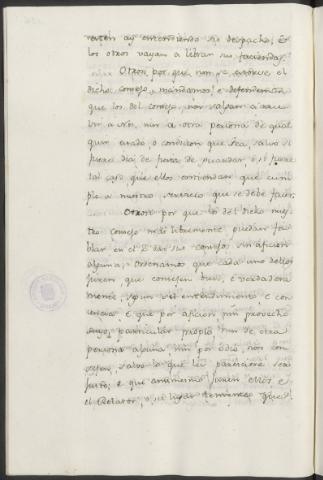 otros vayan a librar sus faciendas.
Otrosi por que non se estorve el
dicho consejo, mandamos, e defendemos
que los del consejo, non salgan a
a Nos, nin a otra persona de qual
quier estado, o condicion que sea, salvo si
fuere dia de fuera de , o si fuere
tal caso que ellos entiendan que cum
ple a nuestro servicio que se debe facer.
Otrosi por que los del dicho nues
tro consejo mas libremente puedan fa
blar en el e dar sus consejos sin aficion
alguna, Ordenamos que cada uno dellos
juren, que consejen bien, e verdadera
mente, segun su entendimiento e con
ciencia e que por aficion, nin provecho
suyo, particular propio nin de otra
persona alguna nin por odio, non con
sejen, salvo lo que les pareciere seer
justo; e que ansimismo juren ellos e
el Relator, o su lugar teniente que